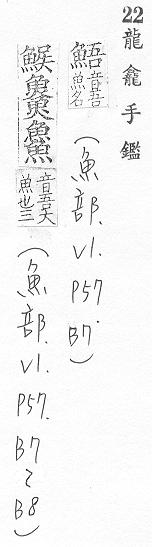 22 龍龕手鑑
鯃 音吾 魚名 (魚部. V1. P57. B7)
音吾大 魚也三 (魚部. V1. P57. B7~B8)